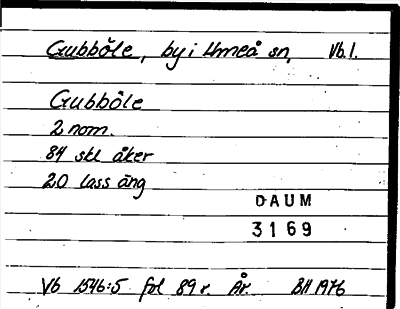 Gubböle, by i Umeå sn, Vb.l.
Gubböle
2 nom.
84 skl åker
20 lass äng
DAUM
3169
Vb 1546:5 fol 89 r. År. BH 1976